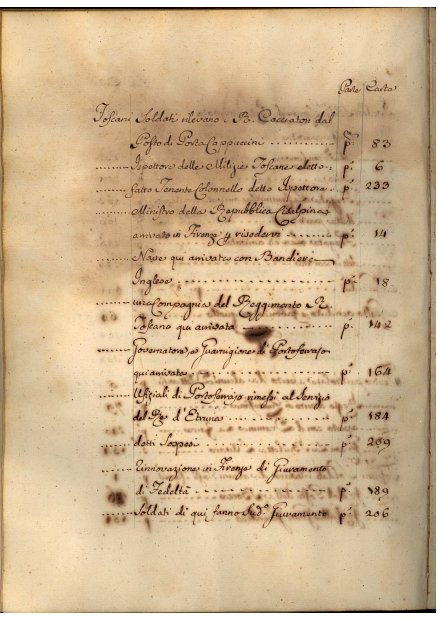 Parte Carta
Toscani Soldati rilevano i R. Cacciatori dal
Posto di Porta Cappuccini ............ p.ª 83
........ Ispettore delle Milizie Toscane eletto . p.ª 6
........ fatto Tenente Colonnello detto Ispettore . p.ª 233
........ Ministro della Repubblica Cisalpina
arrivato in Firenze p risedervi .... p.ª 14
........ Nave qui arrivata con Bandiera
Inglese ............ p.ª 18
........ una Compagnia del Reggimento R.
Toscano qui arrivata ........ p.ª 142
........ Governatore, e Guarnigione di Portoferraio
qui arrivata ............ p.ª 164
........ Ufiziali di Portoferraio rimessi al Servizio
del Re d'Etruria ............ p.ª 184
........ detti Sospesi ............ p.ª 209
........ rinnovazione in Firenze di Giuramento
di Fedeltà ............ p.ª 189
........ Soldati di qui fanno Sud.º Giuramento p.ª 206